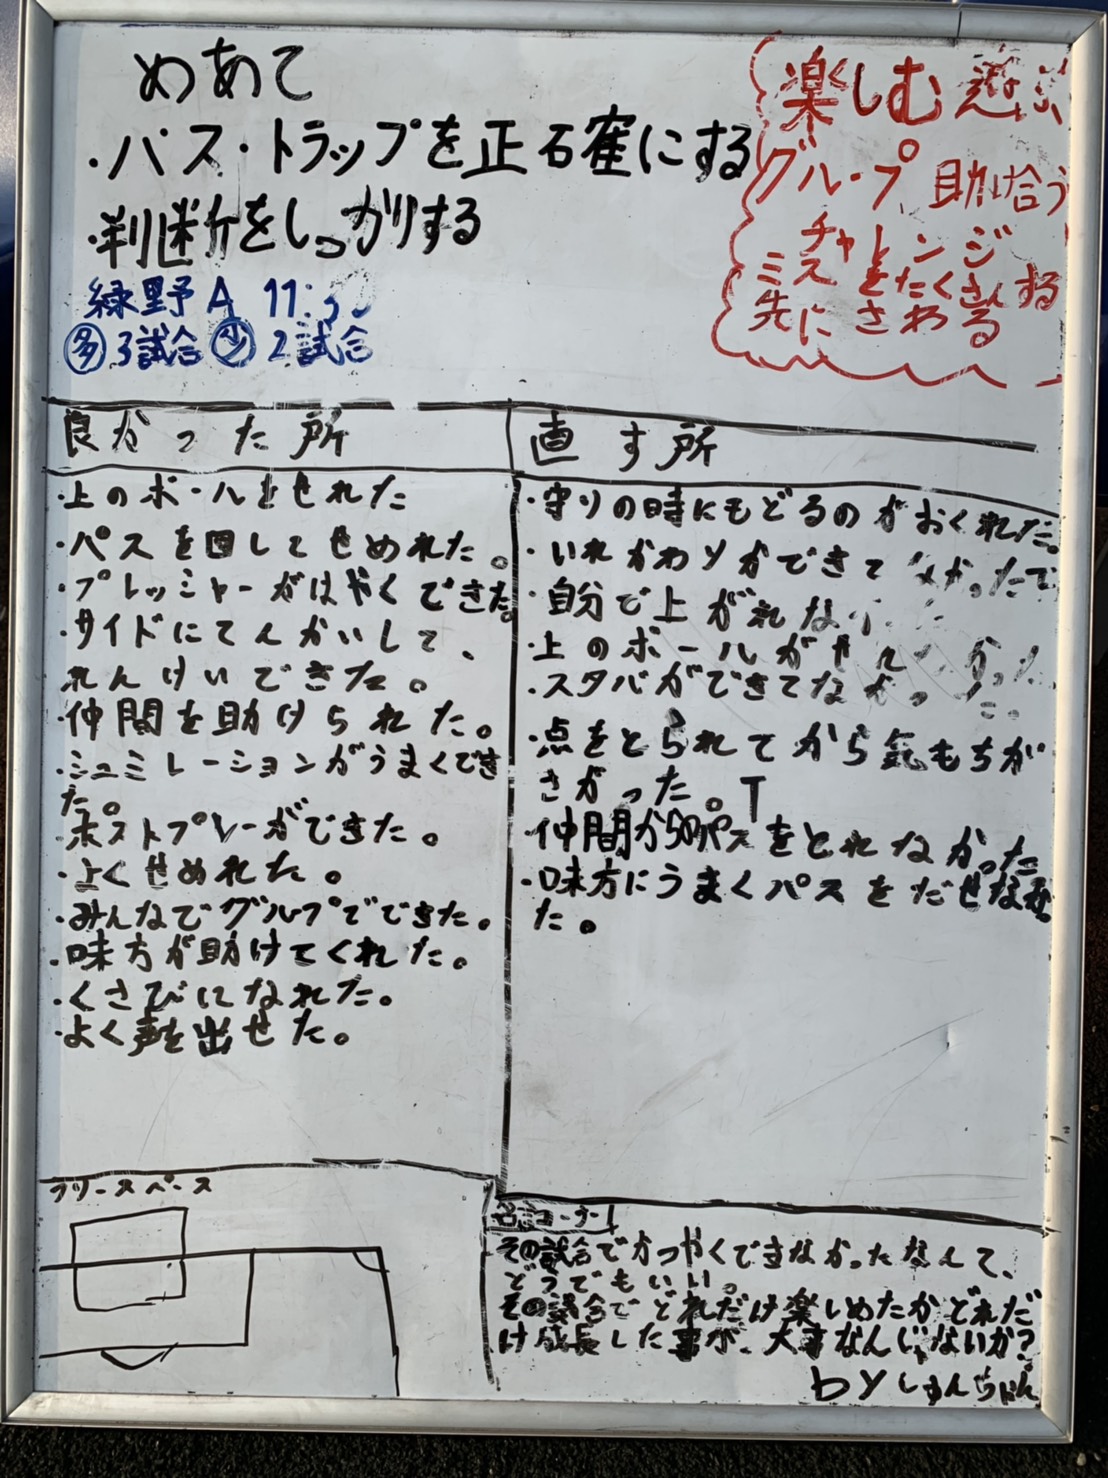 めあて
・パス・トラップを正確にする
・判断をしっかりする
緑野A 11:30
多 3試合 少 2試合
楽しむ 遊ぶ
グループ 助け合う
チャレンジ
ミスをたくさんする
先にさわる
良かった所
・上のボールをせれた
・パスを回してせめれた。
・プレッシャーがはやくできた。
・サイドにてんかいして、
れんけいできた。
・仲間を助けられた。
・シュミレーションがうまくでき
た。
・ポストプレーができた。
・よくせめれた。
・みんなでグループでできた。
・味方が助けてくれた。
・くさびになれた。
・よく声を出せた。
直す所
・守りの時にもどるのがおくれた。
・いれかわりができてなかった
・自分で上がれな
・上のボールがせれなかった
・スタバができてなかった。
・点をとられてから気もちが
さがった。
・仲間からのパスをとれなかった
・味方にうまくパスをだせなか
た。
フリースペース
名言コーナー
その試合でかつやくできなかったなんて、
どうでもいい。
その試合でどれだけ楽しめたかどれだ
け成長した事が、大事なんじゃないか?
by しゅんちゃん